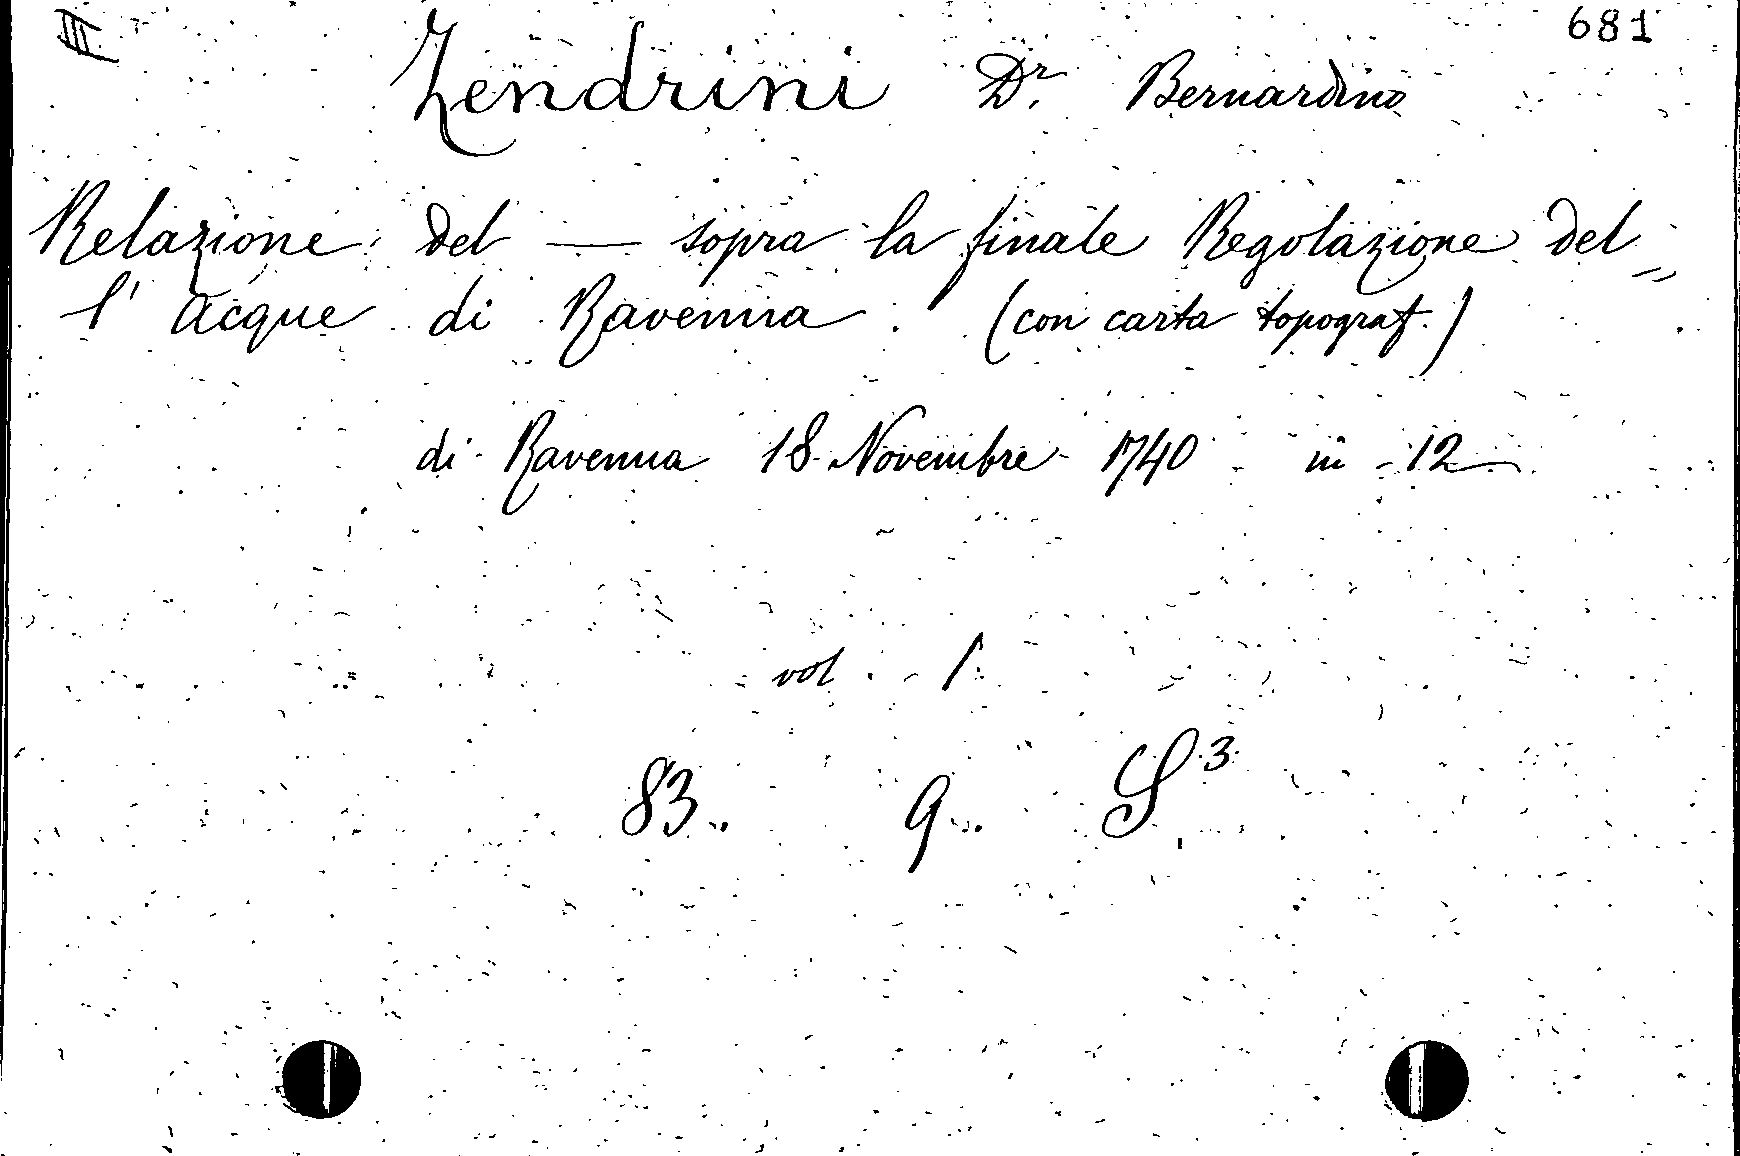 III 681
Zendrini Dr. Bernardino
Relazione del — sopra la finale Regolazione del=
l' acque di Ravenna. (con carta topograf.)
di Ravenna 18 Novembre 1740 in 12
vol. 1
83.. 9.. S³